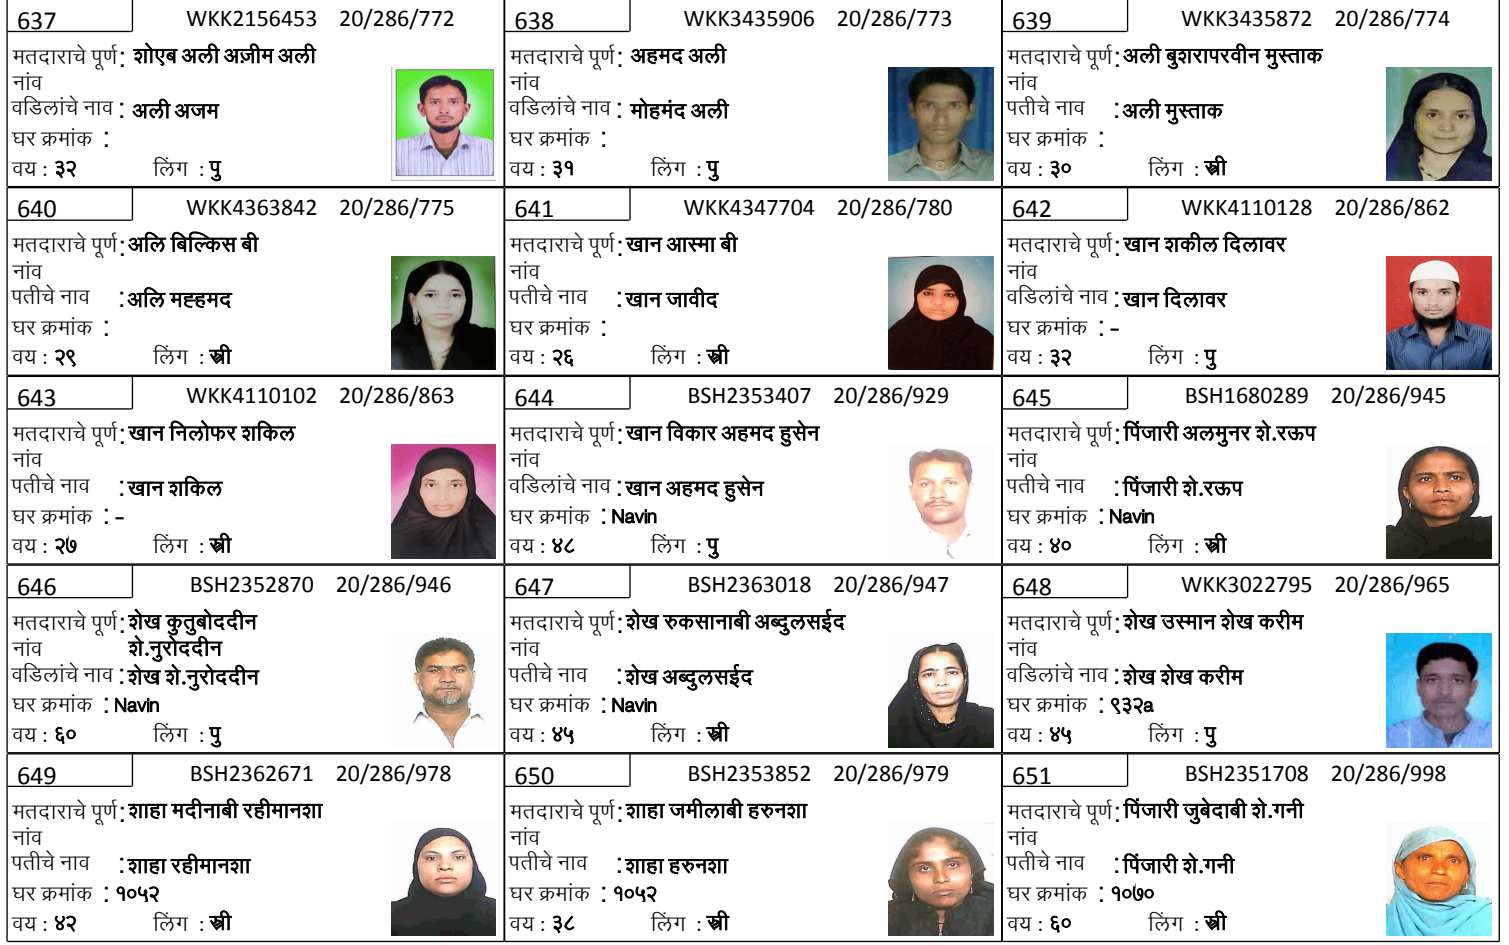 637 WKK2156453 20/286/772
मतदाराचे पूर्ण: शोएब अली अज़ीम अली
नांव
वडिलांचे नाव : अली अजम
घर क्रमांक :
वय : ३२ लिंग : पु
638 WKK3435906 20/286/773
मतदाराचे पूर्ण: अहमद अली
नांव
वडिलांचे नाव : मोहमंद अली
घर क्रमांक :
वय : ३१ लिंग : पु
639 WKK3435872 20/286/774
मतदाराचे पूर्ण: अली बुशरापरवीन मुस्ताक
नांव
पतीचे नाव : अली मुस्ताक
घर क्रमांक :
वय : ३० लिंग : स्त्री
640 WKK4363842 20/286/775
मतदाराचे पूर्ण: अलि बिल्किस बी
नांव
पतीचे नाव : अलि मह्हमद
घर क्रमांक :
वय : २९ लिंग : स्त्री
641 WKK4347704 20/286/780
मतदाराचे पूर्ण: खान आस्मा बी
नांव
पतीचे नाव : खान जावीद
घर क्रमांक :
वय : २६ लिंग : स्त्री
642 WKK4110128 20/286/862
मतदाराचे पूर्ण: खान शकील दिलावर
नांव
वडिलांचे नाव : खान दिलावर
घर क्रमांक : -
वय : ३२ लिंग : पु
643 WKK4110102 20/286/863
मतदाराचे पूर्ण: खान निलोफर शकिल
नांव
पतीचे नाव : खान शकिल
घर क्रमांक : -
वय : २७ लिंग : स्त्री
644 BSH2353407 20/286/929
मतदाराचे पूर्ण: खान विकार अहमद हुसेन
नांव
वडिलांचे नाव : खान अहमद हुसेन
घर क्रमांक : Navin
वय : ४८ लिंग : पु
645 BSH1680289 20/286/945
मतदाराचे पूर्ण: पिंजारी अलमुनर शे.रऊप
नांव
पतीचे नाव : पिंजारी शे.रऊप
घर क्रमांक : Navin
वय : ४० लिंग : स्त्री
646 BSH2352870 20/286/946
मतदाराचे पूर्ण: शेख कुतुबोददीन
नांव शे.नुरोददीन
वडिलांचे नाव : शेख शे.नुरोददीन
घर क्रमांक : Navin
वय : ६० लिंग : पु
647 BSH2363018 20/286/947
मतदाराचे पूर्ण: शेख रुकसानाबी अब्दुलसईद
नांव
पतीचे नाव : शेख अब्दुलसईद
घर क्रमांक : Navin
वय : ४५ लिंग : स्त्री
648 WKK3022795 20/286/965
मतदाराचे पूर्ण: शेख उस्मान शेख करीम
नांव
वडिलांचे नाव : शेख शेख करीम
घर क्रमांक : ९३२a
वय : ४५ लिंग : पु
649 BSH2362671 20/286/978
मतदाराचे पूर्ण: शाहा मदीनाबी रहीमानशा
नांव
पतीचे नाव : शाहा रहीमानशा
घर क्रमांक : १०५२
वय : ४२ लिंग : स्त्री
650 BSH2353852 20/286/979
मतदाराचे पूर्ण: शाहा जमीलाबी हरुनशा
नांव
पतीचे नाव : शाहा हरुनशा
घर क्रमांक : १०५२
वय : ३८ लिंग : स्त्री
651 BSH2351708 20/286/998
मतदाराचे पूर्ण: पिंजारी जुबेदाबी शे.गनी
नांव
पतीचे नाव : पिंजारी शे.गनी
घर क्रमांक : १०७०
वय : ६० लिंग : स्त्री